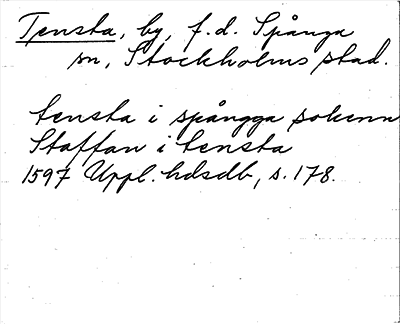 Tensta, by, f.d. Spånga
sn, Stockholms stad.
tensta i spångga sokenn
Staffan i tensta
1597 Uppl. hdsdb, s. 178.